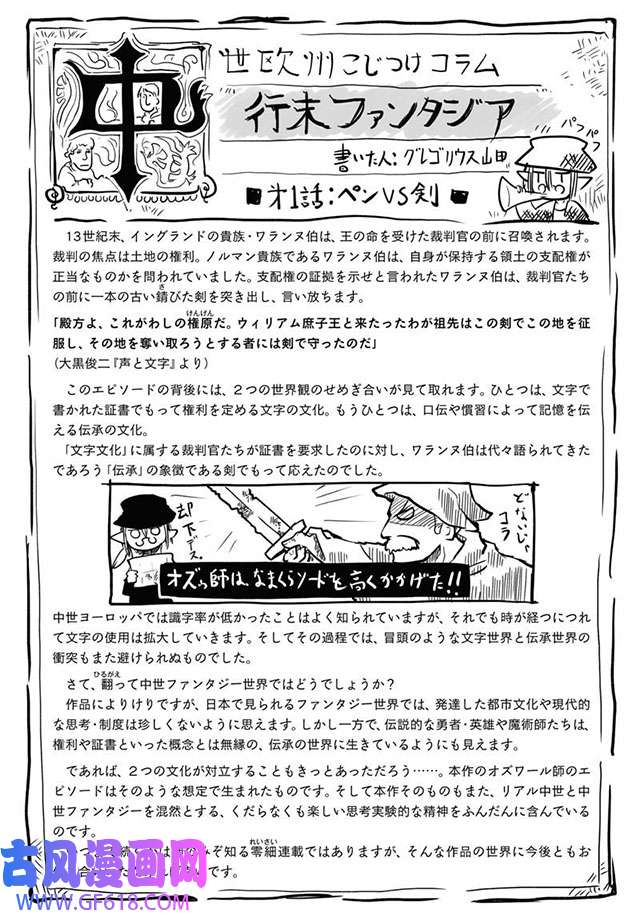 中世欧州こじつけコラム
行末ファンタジア
書いた人：グレゴリウス山田
パフパフ
■ 才1話：ペンVS剣 ■
13世紀末、イングランドの貴族・ワランヌ伯は、王の命を受けた裁判官の前に召喚されます。
裁判の焦点は土地の権利。ノルマン貴族であるワランヌ伯は、自身が保持する領土の支配権が
正当なものかを問われていました。支配権の証拠を示せと言われたワランヌ伯は、裁判官たち
の前に一本の古い錆びた剣を突き出し、言い放ちます。
「殿方よ、これがわしの権原だ。ウィリアム庶子王と来たったわが祖先はこの剣でこの地を征
服し、その地を奪い取ろうとする者には剣で守ったのだ」
（大黒俊二『声と文字』より）
このエピソードの背後には、２つの世界観のせめぎ合いが見て取れます。ひとつは、文字で
書かれた証書でもって権利を定める文字の文化。もうひとつは、口伝や慣習によって記憶を伝
える伝承の文化。
「文字文化」に属する裁判官たちが証書を要求したのに対し、ワランヌ伯は代々語られてきた
であろう「伝承」の象徴である剣でもって応えたのでした。
どないじゃコラ
却下アース。
オズゥ師は、なまくらソードを高くかかげた!!
中世ヨーロッパでは識字率が低かったことはよく知られていますが、それでも時が経つにつれ
て文字の使用は拡大していきます。そしてその過程では、冒頭のような文字世界と伝承世界の
衝突もまた避けられぬものでした。
さて、翻って中世ファンタジー世界ではどうでしょうか？
作品によりけりですが、日本で見られるファンタジー世界では、発達した都市文化や現代的
な思考・制度は珍しくないように思えます。しかし一方で、伝説的な勇者・英雄や魔術師たちは、
権利や証書といった概念とは無縁の、伝承の世界に生きているようにも見えます。
であれば、２つの文化が対立することもきっとあっただろう……。本作のオズワール師のエ
ピソードはそのような想定で生まれたものです。そして本作そのものもまた、リアル中世と中
世ファンタジーを混然とする、くだらなくも楽しい思考実験的な精神をふんだんに含んでいる
のです。
知る零細連載ではありますが、そんな作品の世界に今後ともお
です。
古风漫画网
WWW.GF618.COM